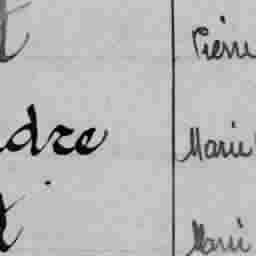 t Pierre
dre Marie
t Marie